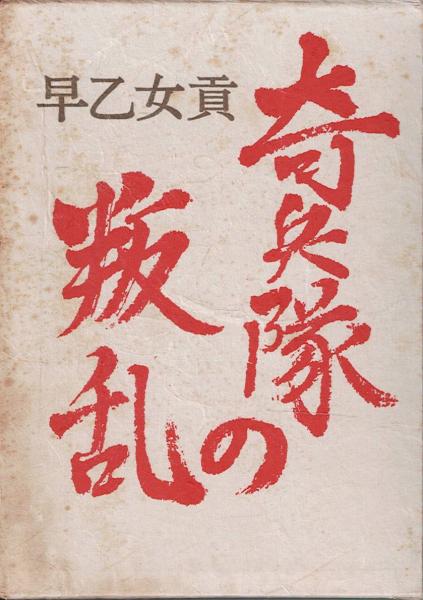 奇兵隊の
叛乱
早乙女貢